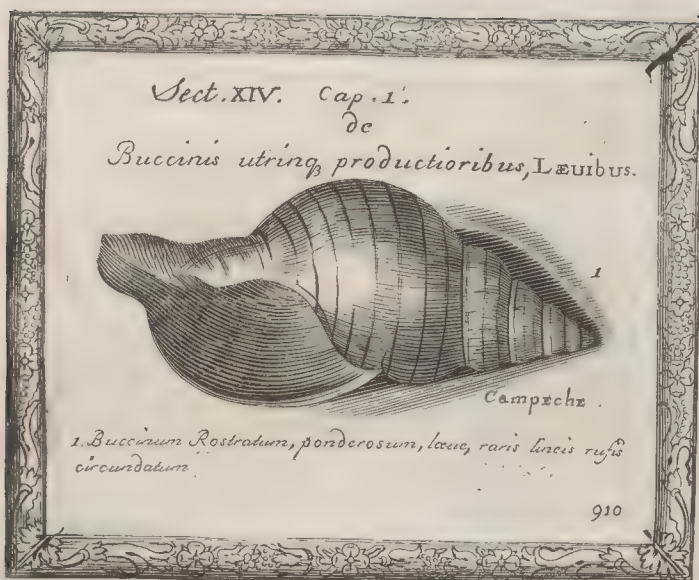 Sect. XIV. Cap. 1.
de
Buccinis utrinq productioribus, Læuibus.
1
Campeche.
1. Buccinum Rostratum, ponderosum, læue, raris lineis rufis
circundatum
910